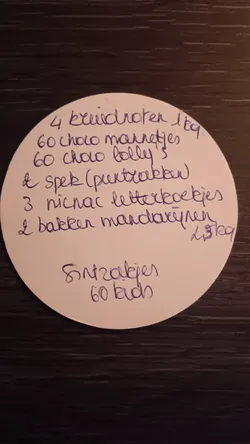 4 kruidnoten 1kg
60 choco mannetjes
60 choco lolly's
2 spek (puntzakken)
3 nicnac letterkoekjes
2 bakken mandarijnen
2,3kg
Sintzakjes
60 kids